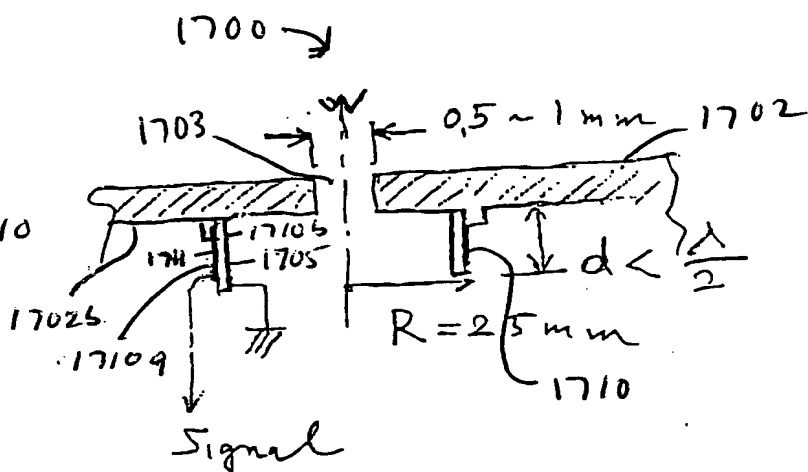 1700
1703
0,5 ~ 1 mm
1702
10
1710b
1711
1705
d < λ/2
1702b
1710a
R = 25 mm
1710
Signal